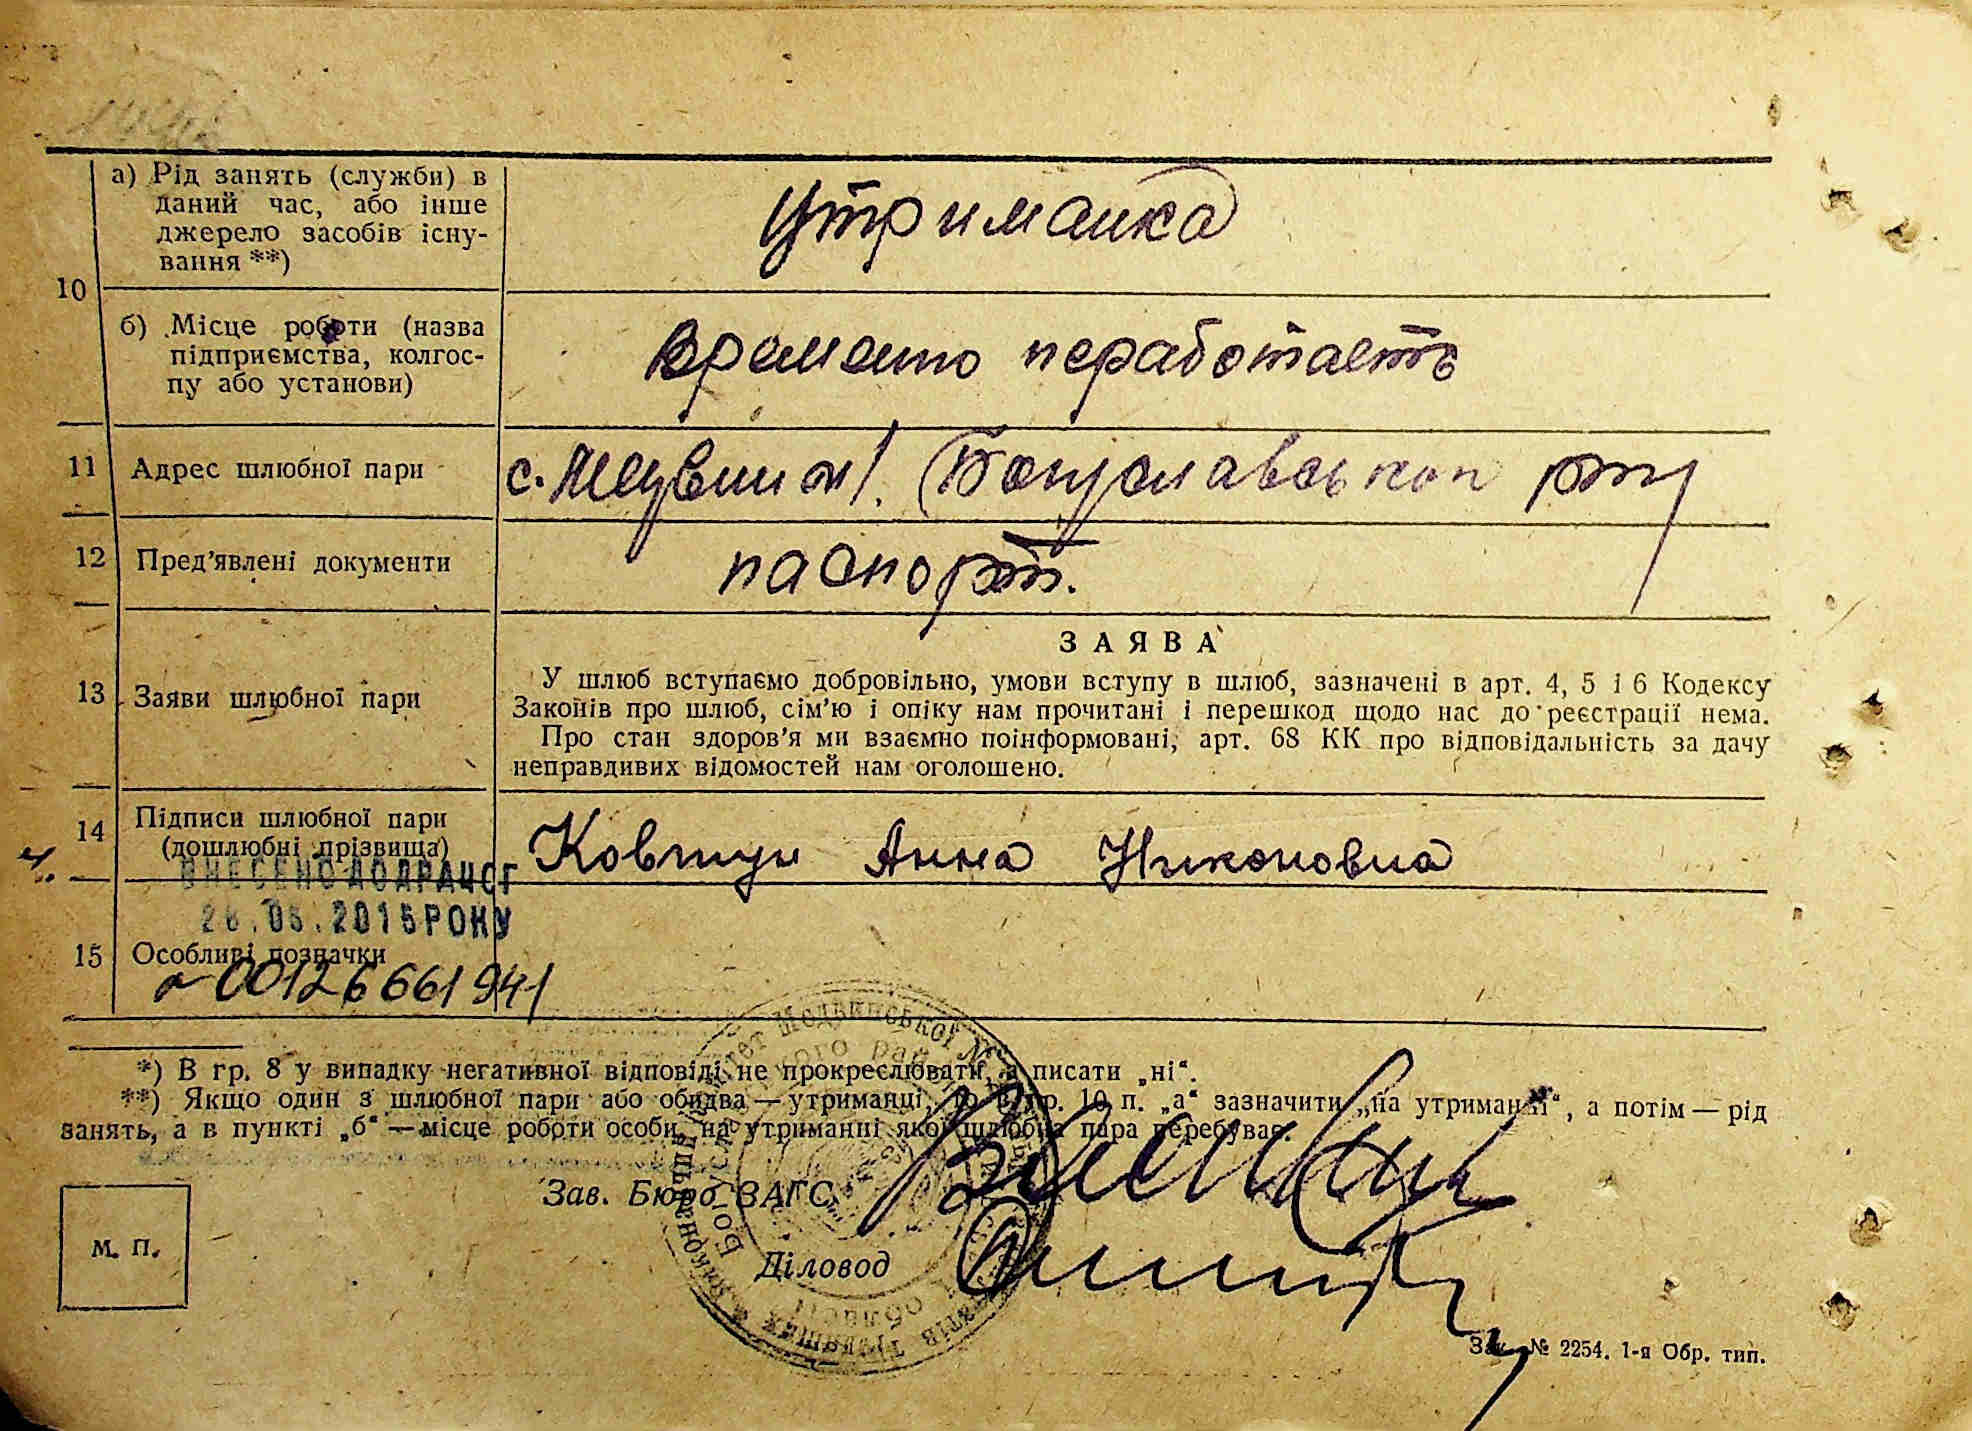 а) Рід занять (служби) в
даний час, або інше
джерело засобів існу-
вання **)
Утриманка
10
б) Місце роботи (назва
підприємства, колгос-
пу або установи)
временно неработаеть
11 Адрес шлюбної пари
с. Медвин Богуславськоп рну
12 Пред’явлені документи
паспорт.
ЗАЯВА
13 Заяви шлюбної пари
У шлюб вступаємо добровільно, умови вступу в шлюб, зазначені в арт. 4, 5 і 6 Кодексу
Законів про шлюб, сім’ю і опіку нам прочитані і перешкод щодо нас до реєстрації нема.
Про стан здоров’я ми взаємно поінформовані, арт. 68 КК про відповідальність за дачу
неправдивих відомостей нам оголошено.
14 Підписи шлюбної пари
(дошлюбні прізвища)
Ковтун Анна Никоновна
ВНЕСЕНО ДО ДРАЦСГ
26.05.2015 РОКУ
15 Особливі позначки
00126661941
*) В гр. 8 у випадку негативної відповіді не прокреслювати, а писати „ні“.
**) Якщо один з шлюбної пари або обидва — утриманці, то в гр. 10 п. „а“ зазначити „на утриманні“, а потім — рід
занять, а в пункті „б“ — місце роботи особи, на утриманні якої шлюбна пара перебуває.
Зав. Бюро ЗАГС
М. П.
Діловод
Зак. № 2254. 1-я Обр. тип.